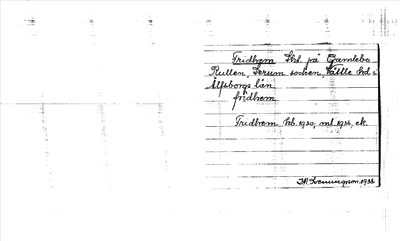 Fridhem Lht. på Gamlebo
Rullen, Lerum socken, Vättle hd i
Älfsborgs län.
fridhem
Fridhem hb. 1930, ml. 1934, ek.
1934